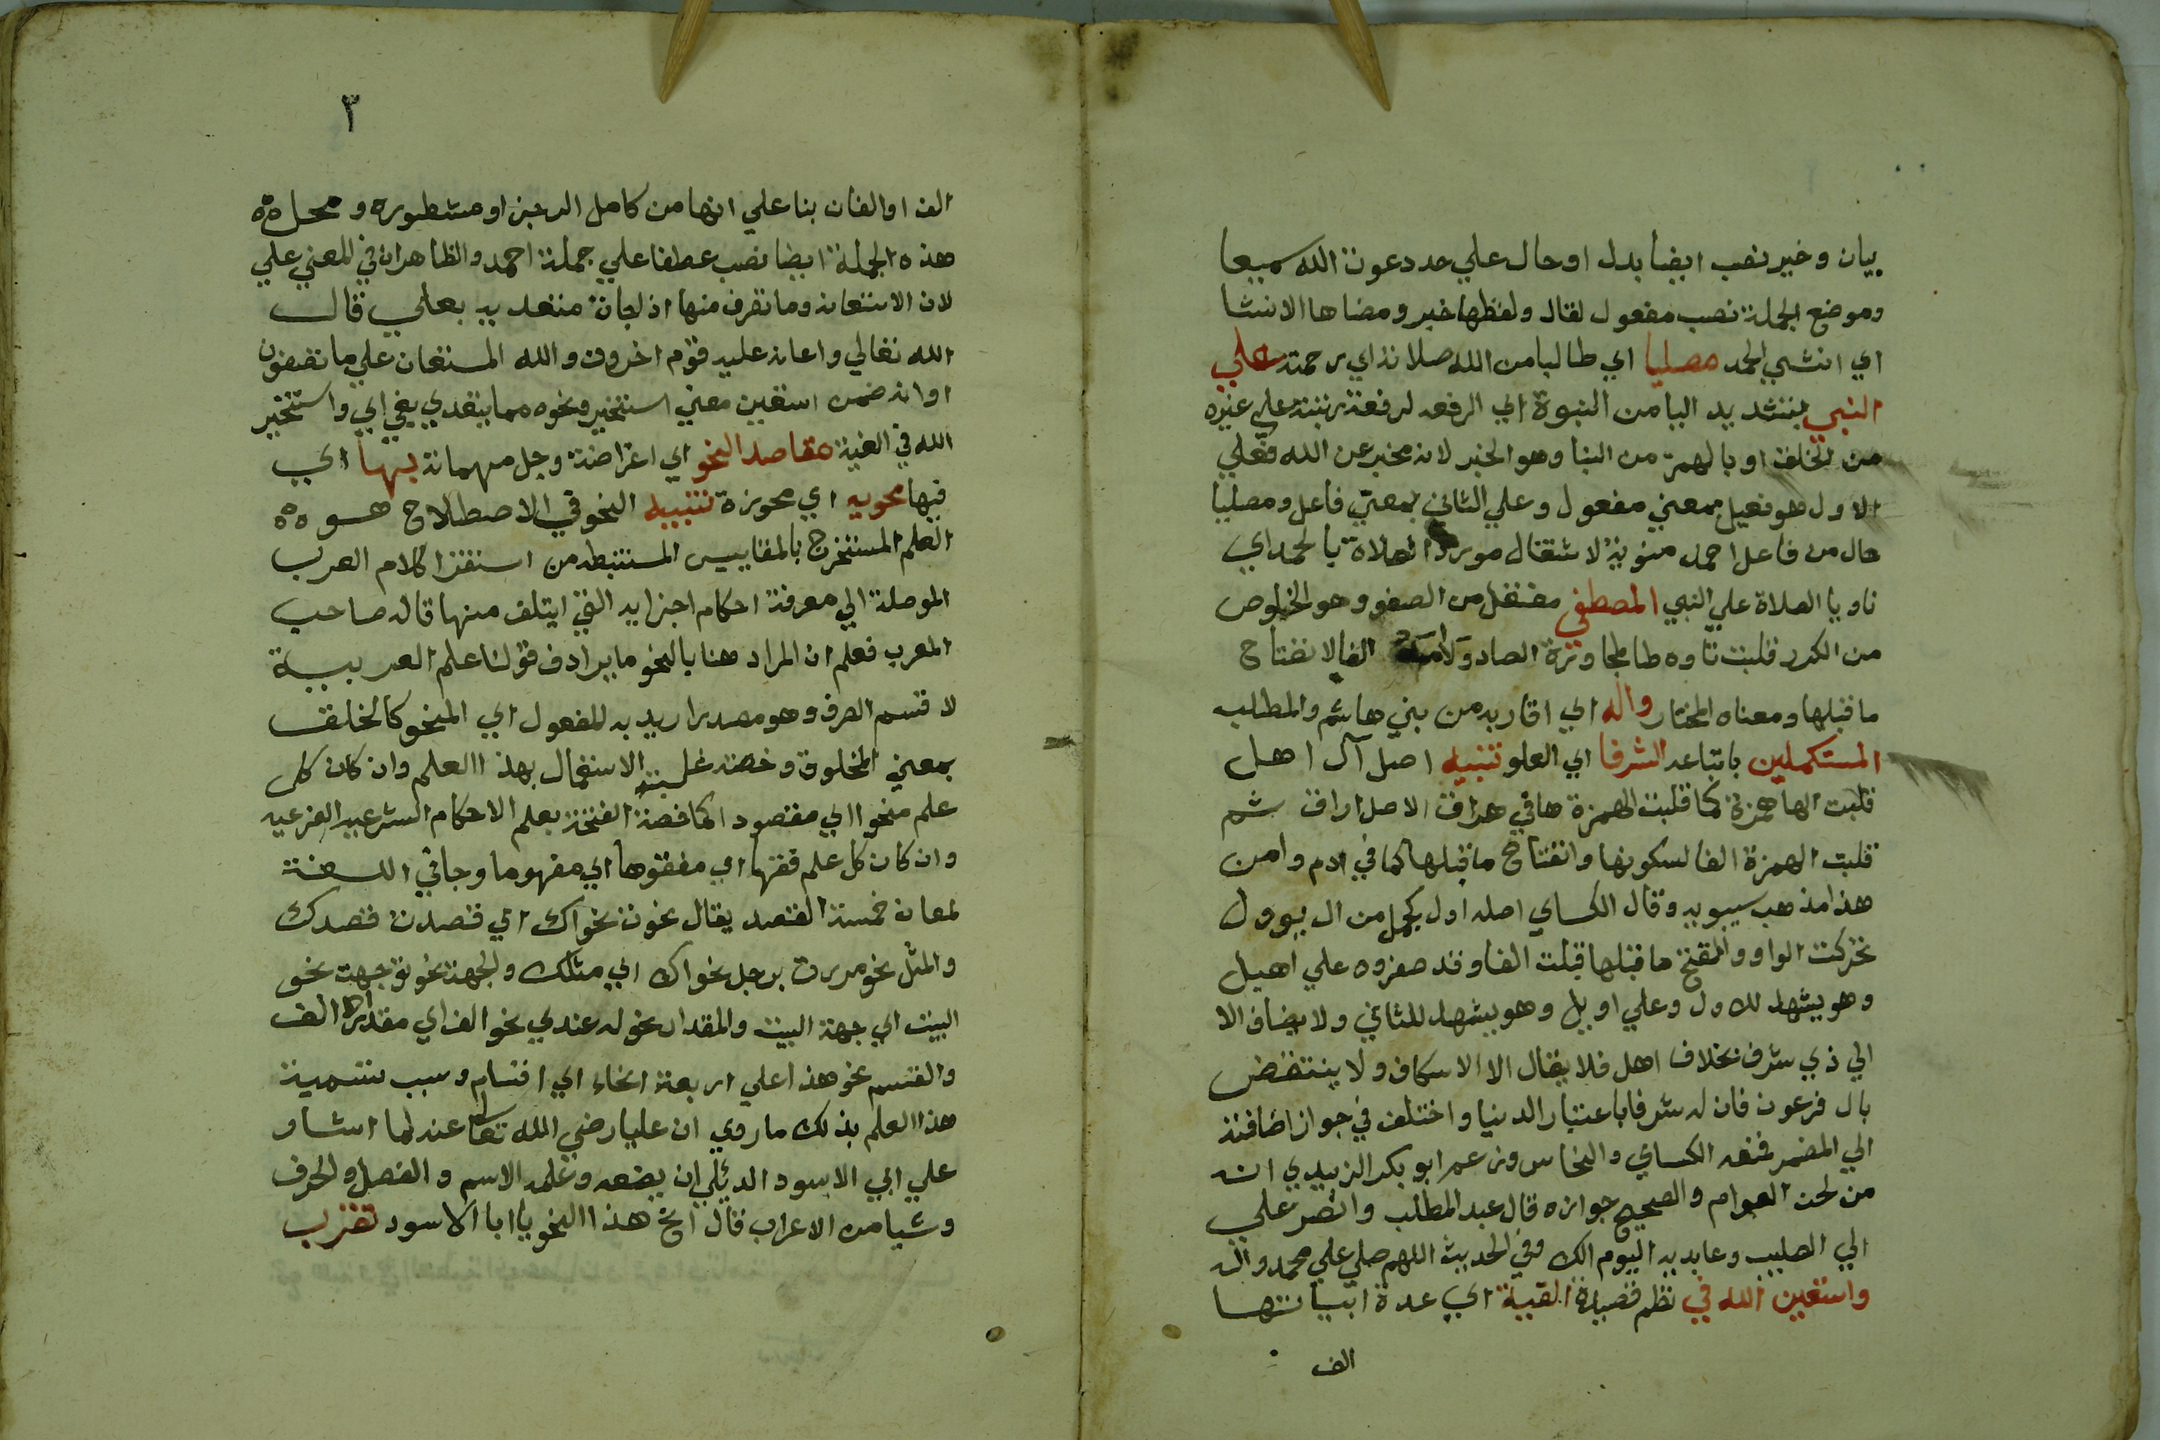 بيان وخير نصب ايضا بدل او حال علي حد دعوت الله سميعا
وموضع الجملة نصب مفعول لقال ولفظها خبر ومعناها الانشا
اي انشي الحمد مصليا اي طالبا من الله صلاته اي رحمته علي
النبي بتشديد اليا من النبوة اي الرفعه لرفعة رتبته علي غيره
من الخلق او بالهمز من النبا وهو الخبر لانه مخبر عن الله فعلي
الاول هو فعيل بمعني مفعول وعلي الثاني بمعني فاعل ومصليا
حال من فاعل احمد منوية لاشتغال مورد الصلاة بالحمد اي
ناويا الصلاة علي النبي المصطفي مفتعل من الصفو وهو الخلوص
من الكدر قلبت تاوه طا لمجاورة الصاد ولامه الفا لانفتاح
ما قبلها ومعناه المختار واله اي اقاربه من بني هاشم والمطلب
المستكملين باتباعه الشرفا اي العلو تنبيه اصل آل اهل
قلبت الها همزة كما قلبت الهمزة ها في هراق الاصل اراق ثم
قلبت الهمزة الفا لسكونها وانفتاح ما قبلها كما في ادم وامن
هذا مذهب سيبويه وقال الكساي اصله اول كجمل من ال يوول
تحركت الواو وانفتح ما قبلها قبلت الفا وقد صغروه علي اهيل
وهو يشهد للاول وعلي اويل وهو يشهد للثاني ولا يضاف الا
الي ذي شرف بخلاف اهل فلا يقال الا الاسكاف ولا ينتقض
بال فرعون فان له شرفا باعتبار الدنيا واختلف في جواز اضافته
الي المضمر فمنعه الكساي والنحاس وزعم ابو بكر الزبيدي انه
من لحن العوام والصحيح جوازه قال عبد المطلب وانصر علي
الي الصليب وعابديه اليوم الك وفي الحديث اللهم صلي علي محمد واله
واستعين الله في نظم قصيدة الفية اي عدة ابياتها
الف
٣
الف او الفان بنا علي انها من كامل الرجز او مشطوره ومحل
هذه الجملة ايضا نصب عطفا علي جملة احمد والظاهر ان في بمعني علي
لان الاستعانه وما تصرف منها اذ لجات متعديه بعلي قال
الله تعالي واعانه عليه قوم اخرون والله المستعان علي ما تصفون
او انه ضمن استعين معني استخير ونحوه مما يتعدي بفي اي واستخير
الله في الفية مقاصد النحو اي اغراضه وجل مهماته بها اي
فيها محويه اي محوزة تنبيه النحو في الاصطلاح هو
العلم المستخرج بالمقاييس المستنبطه من استقرا كلام العرب
الموصلة الي معرفة احكام اجزايه التي ايتلف منها قاله صاحب
المعرب فعلم ان المراد هنا بالنحو ما يرادف قولنا علم العربية
لا قسم الصرف وهو مصدر اريد به المفعول اي المنحو كالخلق
بمعني المخلوق وخصته غلبة الاستعمال بهذا العلم وان كان كل
علم منحوا اي مقصودا كما خصت الفقه بعلم الاحكام الشرعيه الفرعيه
وان كان كل علم فقها اي مفقوها اي مفهوما وجا في اللغة
لمعان خمسة القصد يقال نحوت نحواك اي قصدت قصدك
والمثل نحو مررت برجل نحواك اي مثلك والجهة نحو توجهت نحو
البيت اي جهة البيت والمقدار نحو له عندي نحو الف اي مقدار الف
والقسم نحو هذا علي اربعة انحاء اي اقسام وسبب تسمية
هذا العلم بذلك ما روي ان عليا رضي الله تعالي عنه لما اشار
علي ابي الاسود الديئلي ان يضعه وعلمه الاسم والفعل والحرف
وشيا من الاعراب قال انح هذا النحو يا ابا الاسود تقرب